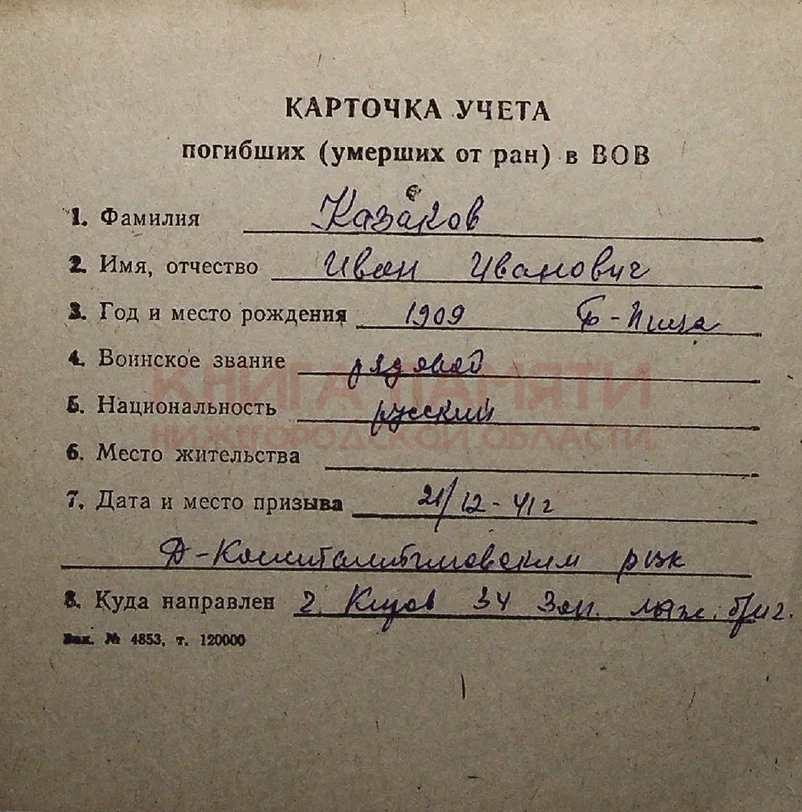 КАРТОЧКА УЧЕТА
погибших (умерших от ран) в ВОВ
1. Фамилия Казаков
2. Имя, отчество Иван Иванович
3. Год и место рождения 1909 Б-Пица
4. Воинское звание рядовой
5. Национальность русский
КНИГА ПАМЯТИ
НИЖЕГОРОДСКОЙ ОБЛАСТИ
6. Место жительства
7. Дата и место призыва 21/12-41г
Д-Константиновским рвк
8. Куда направлен г. Киров 34 Зап. лыж. бриг.
Зак. № 4853, т. 120000